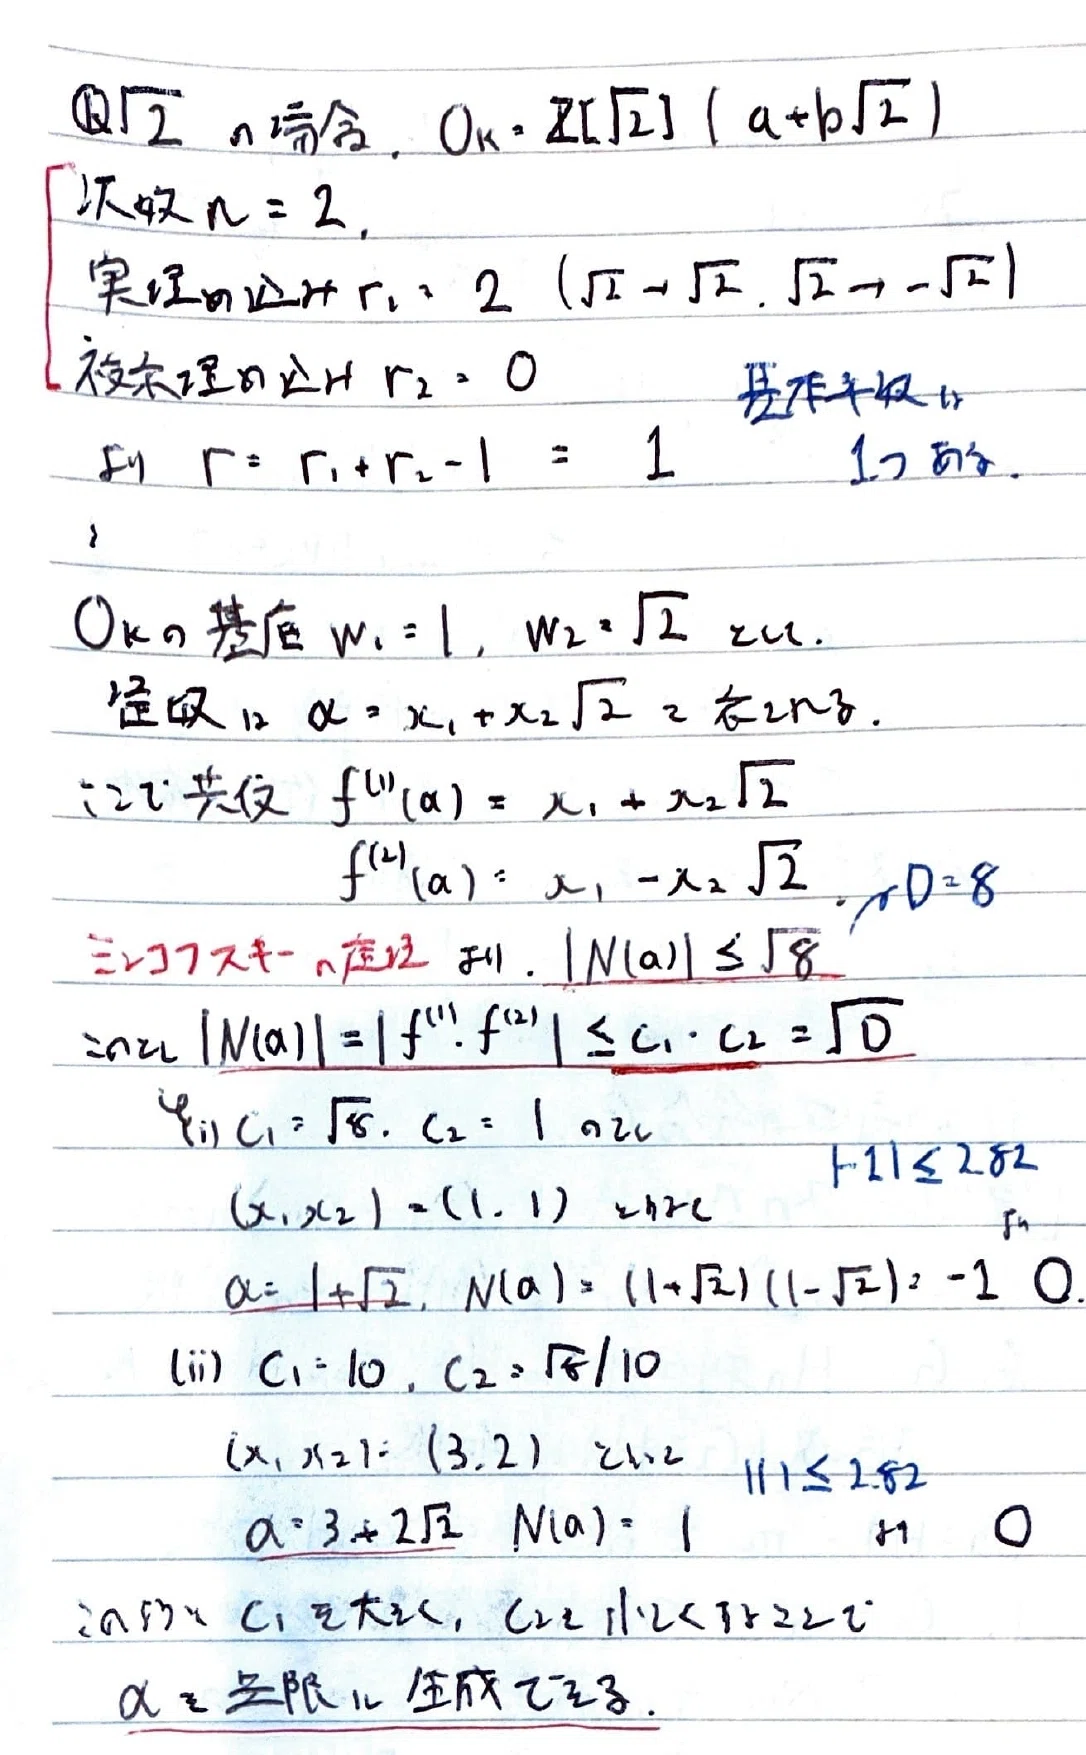 Q√2 の場合, OK = Z[√2] ( a+b√2 )
次数 n = 2,
実埋め込み r₁ = 2 (√2→√2, √2→-√2)
複素埋め込み r₂ = 0
基本単数は
より r = r₁+r₂-1 = 1
1つある.
OKの基底 w₁=1, w₂=√2 とし.
整数は α = x₁+x₂√2 と表される.
ここで共役 f⁽¹⁾(α) = x₁ + x₂√2
f⁽²⁾(α) = x₁ - x₂√2.
D=8
ミンコフスキーの定理 より. |N(α)| ≤ √8
このとし |N(α)| = |f⁽¹⁾・f⁽²⁾| ≤ C₁・C₂ = √D
例i) C₁ = √8. C₂ = 1 のとし
|-1| ≤ 2.82
(x₁x₂) = (1. 1) とれば
より
α = 1+√2, N(α) = (1+√2)(1-√2) = -1 O.
(ii) C₁ = 10, C₂ = √8/10
(x₁ x₂) = (3.2) といと
|1| ≤ 2.82
α = 3+2√2 N(α) = 1 より O
このように C₁を大きく, C₂を小さくすることで
αを無限に生成できる.